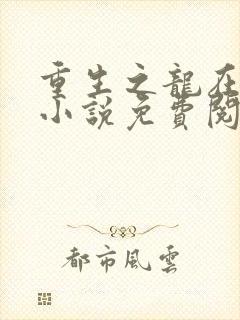 重生之龍在
小說免費閱
都市風雲